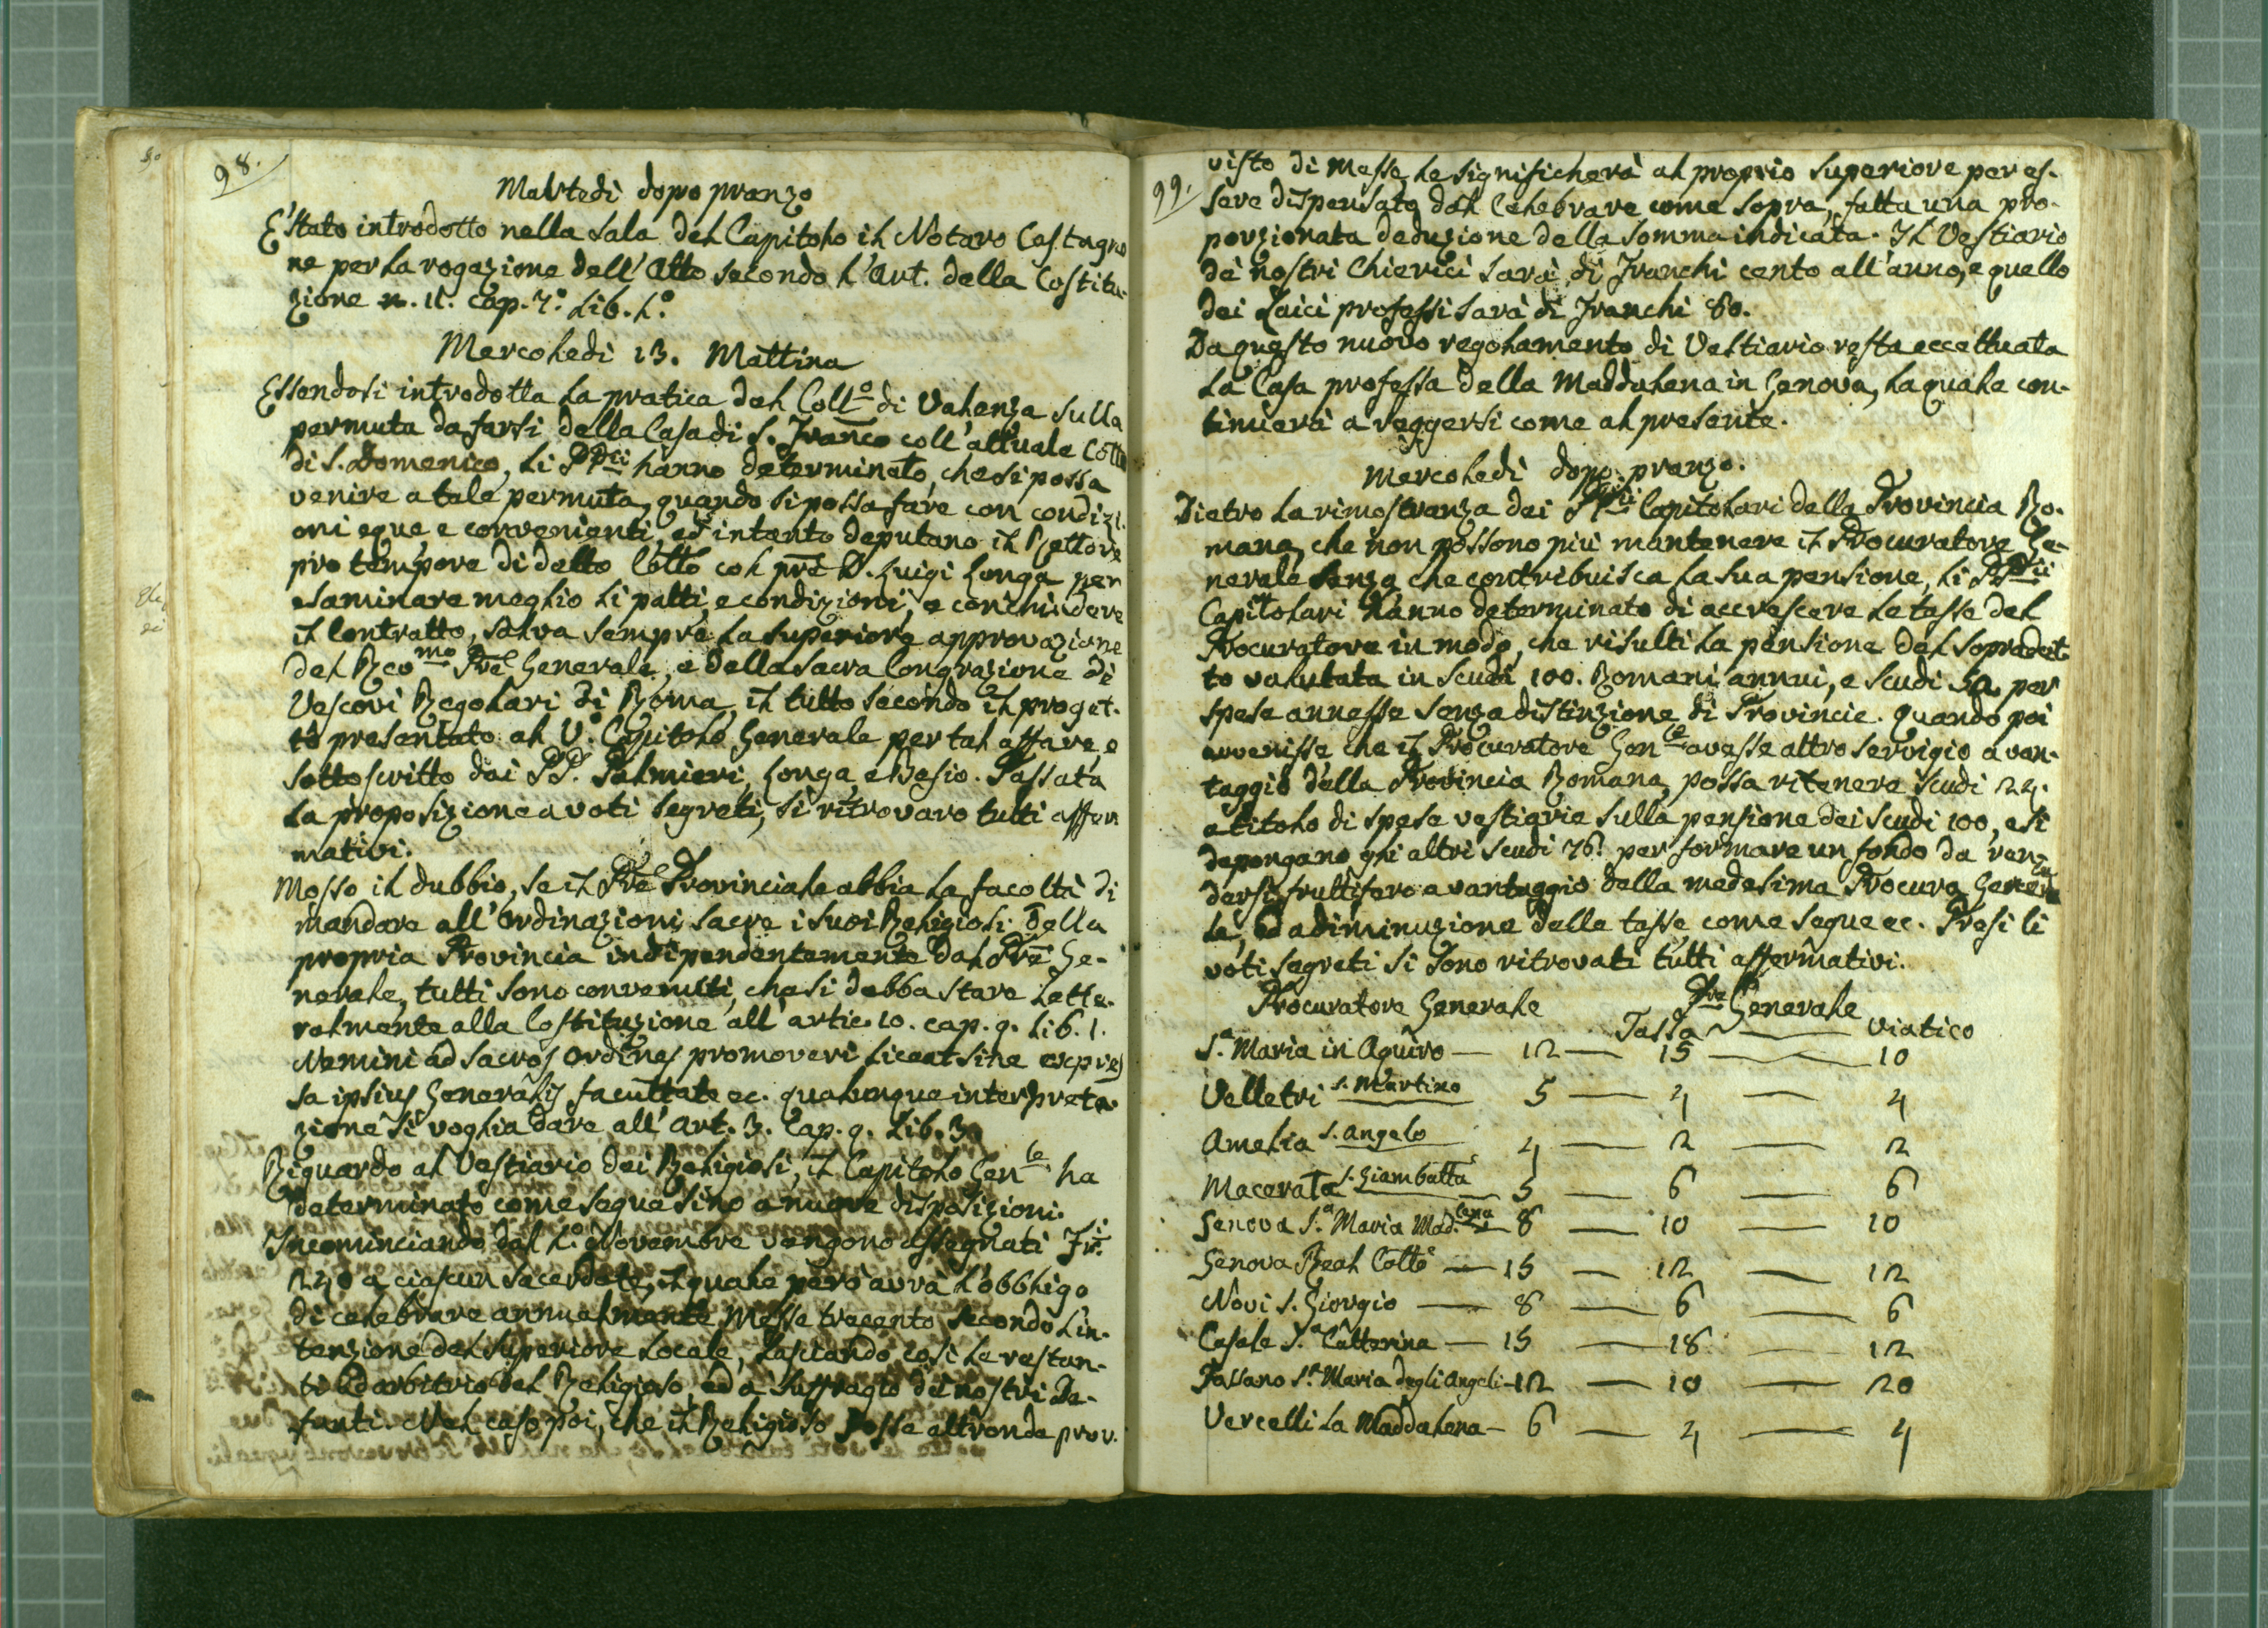 98.
Martedì dopo pranzo
E' stato introdotto nella sala del Capitolo il Notaro Castagno
ne per la rogazione dell'Atto secondo l'Art. della Costitu-
zione n. 11. Cap. 7.° Lib. 1.°
Mercoledì 13. Mattina
Essendosi introdotta la pratica del Coll.° di Valenza sulla
permuta da farsi della Casa di S. Franco coll'attuale Collo
di S. Domenico, li PPdci hanno determinato, che si possa
venire a tale permuta, quando si possa fare con condizi-
oni eque e convenienti, ed intanto deputano il Rettore
pro tempore di detto Collo col pre D. Luigi Longa per
esaminare meglio li patti, e condizioni, e conchiudere
il Contratto, salva sempre la superiore approvazione
del Revmo Pre Generale, e della Sacra Congrazione dè
Vescovi Regolari di Roma, il tutto secondo il proget-
to presentato al V. Capitolo Generale per tal affare, e
sottoscritto dai PP. Palmieri, Longa, e Besio. Passata
la proposizione a voti segreti, si ritrovaro tutti affer
mativi.
Mosso il dubbio, se il Pre Provinciale abbia la facoltà di
mandare all'Ordinazioni sacre i suoi Religiosi della
propria Provincia indipendentemente dal Pre Ge-
nerale, tutti sono convenuti, che si debba stare lette-
ralmente alla Costituzione all'artic. 10. cap. 9. Lib. 1.
Nemini ad sacros Ordines promoveri liceat sine expres
sa ipsius Generalis facultate ec. qualunque interpreta-
zione si voglia dare all'Art. 3. Cap. 9. Lib. 3.
Riguardo al Vestiario dei Religiosi, il Capitolo Genle ha
determinato come segue sino a nuove disposizioni.
Incominciando dal 1.° Novembre vengono assegnati Fr.i
240 a ciascun sacerdote, il quale però avrà l'obbligo
di celebrare annualmente Messe trecento secondo l'in-
tenzione del Superiore locale, lasciando così le restan-
ti ad arbitrio del Religioso, ed a suffragio dei nostri De-
funti. Nel caso poi, che il Religioso fosse altronde prov-
99.
visto di Messe, le significherà al proprio Superiore per es-
sere dispensato dal Celebrare come sopra, fatta una pro-
porzionata deduzione della somma indicata. Il Vestiario
dè nostri Chierici sarà di Franchi cento all'anno, e quello
dei Laici professi sarà di Franchi 80.
Da questo nuovo regolamento di Vestiario resta eccettuata
la Casa professa della Maddalena in Genova, la quale con-
tinuerà a reggersi come al presente.
Mercoledì dopo pranzo.
Dietro la rimostranza dei PPdci Capitolari della Provincia Ro-
mana, che non possono più mantenere il Procuratore Ge-
nerale senza che contribuisca la sua pensione, li PPdci
Capitolari hanno determinato di accrescere le tasse del
Procuratore in modo, che risulti la pensione del sopradet-
to valutata in scudi 100. Romani annui, e scudi 50. per
spese annesse senza distinzione di Provincie. Quando poi
avvenisse che il Procuratore Genle avesse altro servigio a van-
taggio della Provincia Romana, possa ritenere scudi 24.
a titolo di spese vestiarie sulla pensione dei scudi 100, e si
depongano gli altri scudi 76. per formare un fondo da ren-
dersi fruttifero a vantaggio della medesima Procura Genera
le, ed a diminuzione delle tasse come segue ec. Presi li
voti segreti si sono ritrovati tutti affermativi.
Procuratore Generale Pre Generale
Tassa — Viatico
S.a Maria in Aquiro — 12 — 15 — 10
Velletri S. Martino 5 — 4 — 4
Amelia S. Angelo 4 — 2 — 2
Macerata S. Giambatta — 5 — 6 — 6
Genova S.a Maria Mad.lena — 8 — 10 — 10
Genova Real Collo — 15 — 12 — 12
Novi S. Giorgio — 8 — 6 — 6
Casale S.a Catterina — 15 — 18 — 12
Fossano S.a Maria degli Angeli — 12 — 10 — 20
Vercelli la Maddalena — 6 — 4 — 4